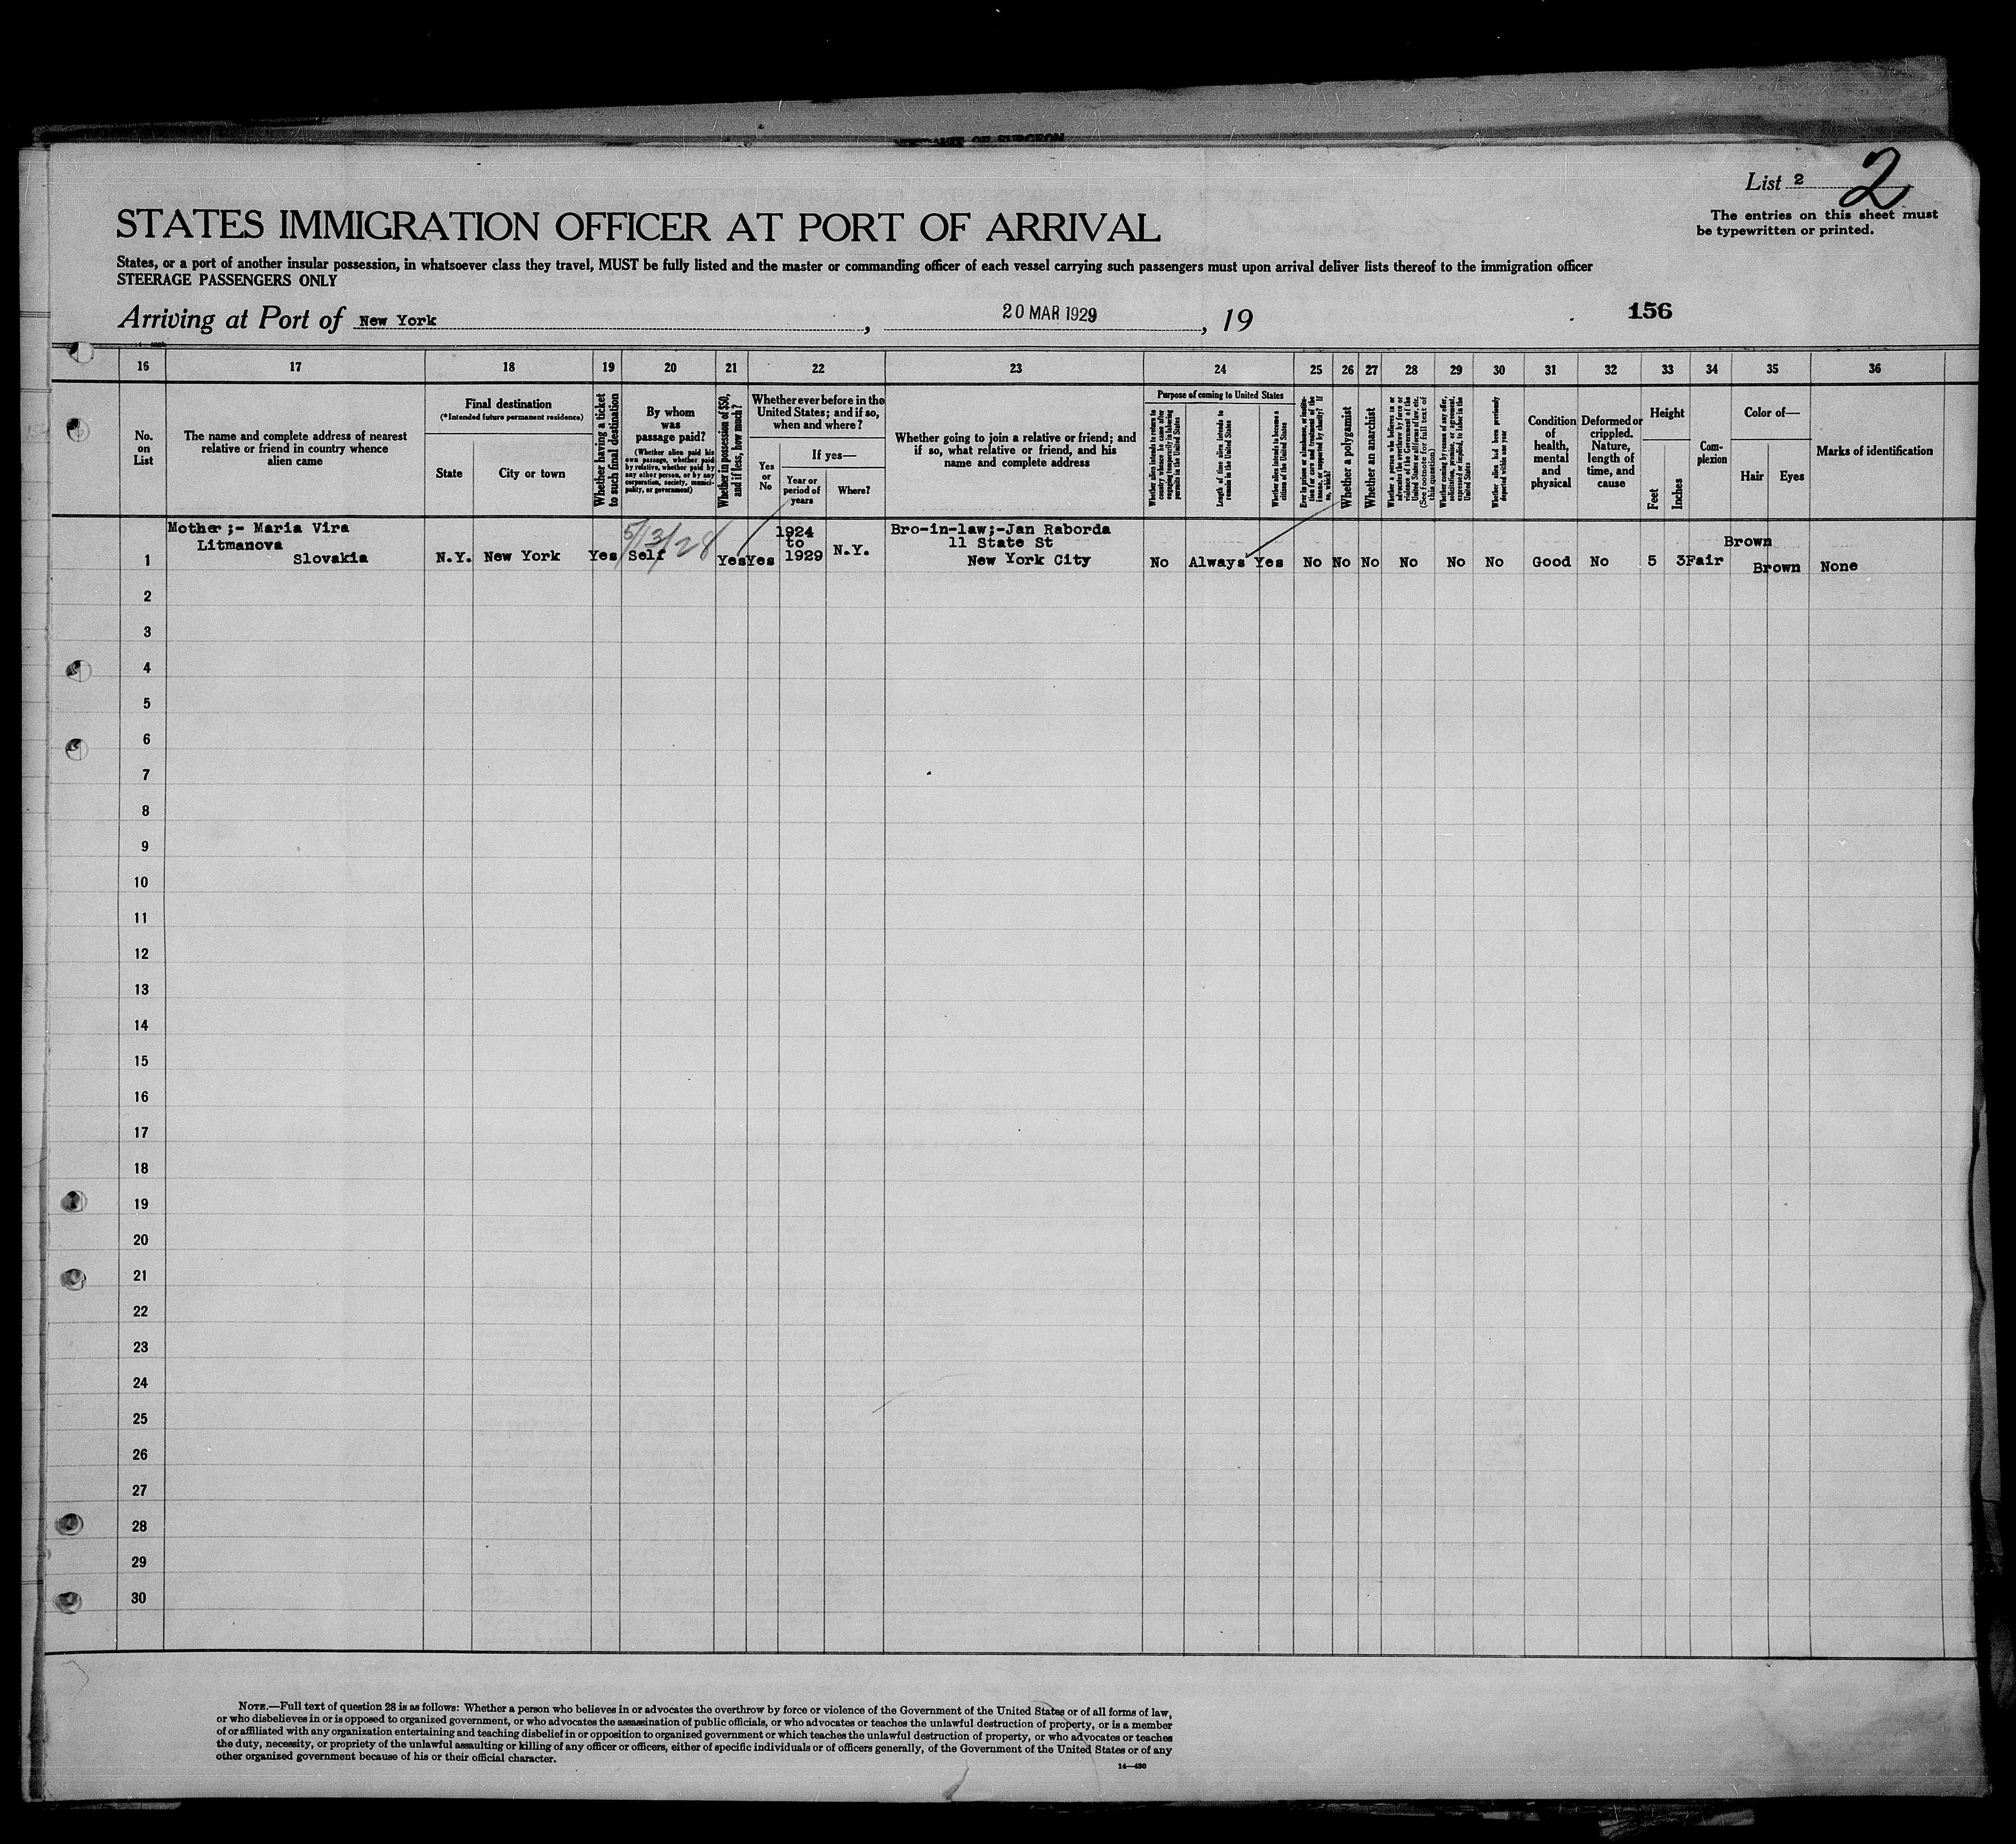 List 2
2
The entries on this sheet must
be typewritten or printed.
STATES IMMIGRATION OFFICER AT PORT OF ARRIVAL
States, or a port of another insular possession, in whatsoever class they travel, MUST be fully listed and the master or commanding officer of each vessel carrying such passengers must upon arrival deliver lists thereof to the immigration officer
STEERAGE PASSENGERS ONLY
Arriving at Port of New York, 20 MAR 1929, 19
156
16 17 18 19 20 21 22 23 24 25 26 27 28 29 30 31 32 33 34 35 36
No.
on
List
The name and complete address of nearest
relative or friend in country whence
alien came
Final destination
(*Intended future permanent residence)
State
City or town
Whether having a ticket
to such final destination
By whom
was
passage paid?
(Whether alien paid his
own passage, whether paid
by relative, whether paid by
any other person, or by any
corporation, society, munici-
pality, or government)
Whether in possession of $50,
and if less, how much?
Whether ever before in the
United States; and if so,
when and where?
Yes
or
No
If yes—
Year or
period of
years
Where?
Whether going to join a relative or friend; and
if so, what relative or friend, and his
name and complete address
Purpose of coming to United States
Whether alien intends to return to
country whence he came after
engaging temporarily in laboring
pursuits in the United States
Length of time alien intends to
remain in the United States
Whether alien intends to become a
citizen of the United States
Ever in prison or almshouse, or institu-
tion for care and treatment of the
insane, or supported by charity? If
so, which?
Whether a polygamist
Whether an anarchist
Whether a person who believes in or
advocates the overthrow by force or
violence of the Government of the
United States or all forms of law, etc.
(See footnote for full text of
this question)
Whether coming by reason of any offer,
solicitation, promise, or agreement,
expressed or implied, to labor in the
United States
Whether alien had been previously
deported within one year
Condition
of
health,
mental
and
physical
Deformed or
crippled.
Nature,
length of
time, and
cause
Height
Feet
Inches
Com-
plexion
Color of—
Hair
Eyes
Marks of identification
Mother;- Maria Vira
Litmanova
Slovakia
1
N.Y. New York Yes Self
5/3/28
Yes Yes
1924
to
1929
N.Y.
Bro-in-law;-Jan Raborda
11 State St
New York City
No Always Yes No No No No No No Good No 5 3 Fair
Brown
Brown
None
2
3
4
5
6
7
8
9
10
11
12
13
14
15
16
17
18
19
20
21
22
23
24
25
26
27
28
29
30
NOTE.—Full text of question 28 is as follows: Whether a person who believes in or advocates the overthrow by force or violence of the Government of the United States or of all forms of law,
or who disbelieves in or is opposed to organized government, or who advocates the assassination of public officials, or who advocates or teaches the unlawful destruction of property, or is a member
of or affiliated with any organization entertaining and teaching disbelief in or opposition to organized government or which teaches the unlawful destruction of property, or who advocates or teaches
the duty, necessity, or propriety of the unlawful assaulting or killing of any officer or officers, either of specific individuals or of officers generally, of the Government of the United States or of any
other organized government because of his or their official character.
14—430